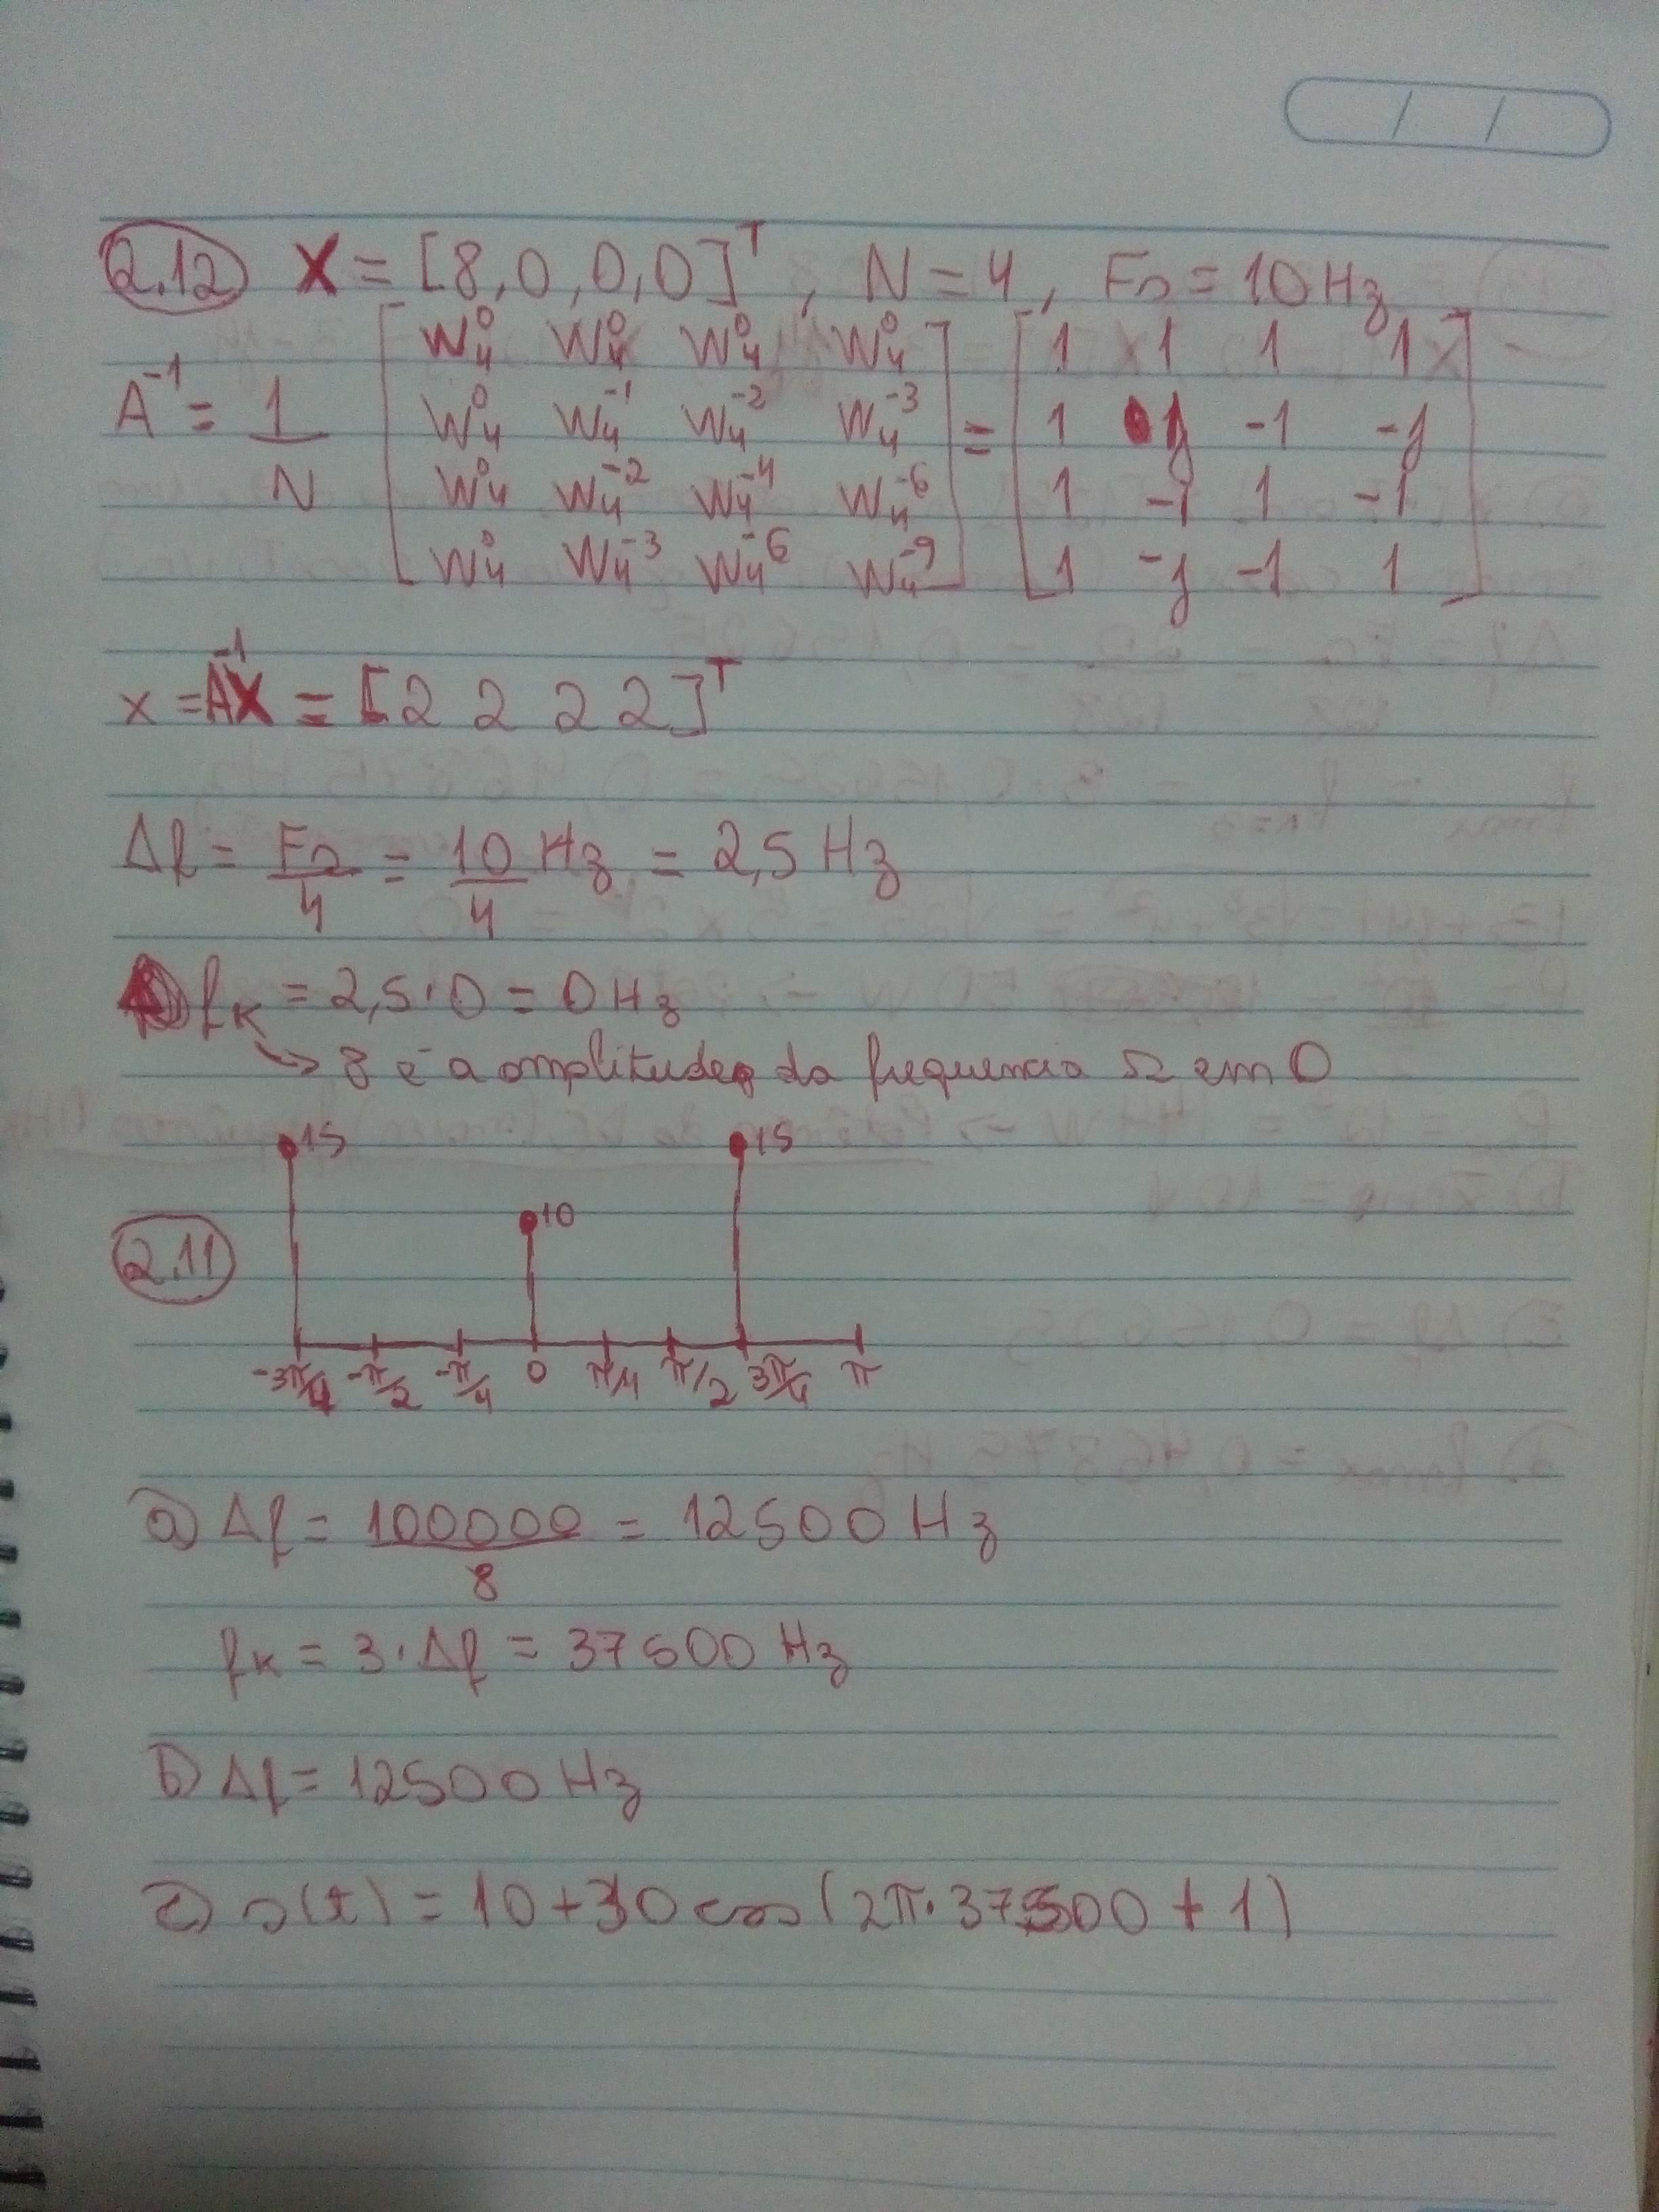 2.12 X = [8, 0, 0, 0]ᵀ, N = 4, Fs = 10 Hz
A⁻¹ = 1/N [W₄⁰ W₄⁰ W₄⁰ W₄⁰ = [1 1 1 1
W₄⁰ W₄⁻¹ W₄⁻² W₄⁻³ 1 j -1 -j
W₄⁰ W₄⁻² W₄⁻⁴ W₄⁻⁶ 1 -1 1 -1
W₄⁰ W₄⁻³ W₄⁻⁶ W₄⁻⁹] 1 -j -1 1]
x = A⁻¹X = [2 2 2 2]ᵀ
Δf = Fs/4 = 10/4 Hz = 2,5 Hz
fₖ = 2,5·0 = 0 Hz
↳ 8 é a amplitude da frequencia Ω em 0
15 15
10
2.11
-3π/4 -π/2 -π/4 0 π/4 π/2 3π/4 π
a) Δf = 100000/8 = 12500 Hz
fₖ = 3·Δf = 37500 Hz
b) Δf = 12500 Hz
c) s(t) = 10 + 30 cos(2π·37500 + 1)